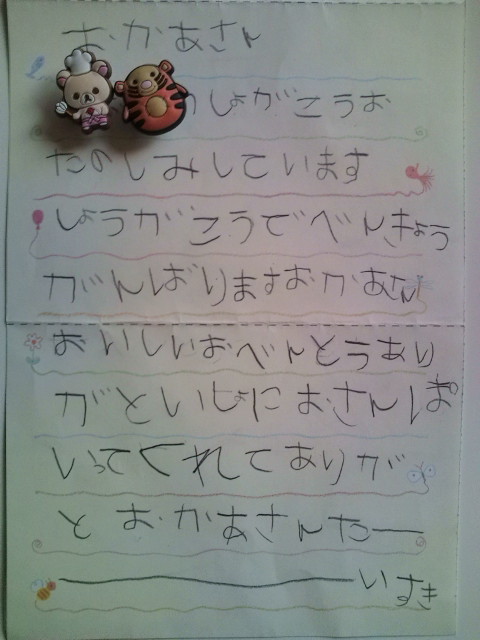 おかあさん
のしょがこうお
たのしみしています
しょうがこうでべんきょう
がんばりますおかあさん
おいしいおべんとうあり
がといしょにおさんぽ
いってくれてありが
とおかあさんだー
ーいすき